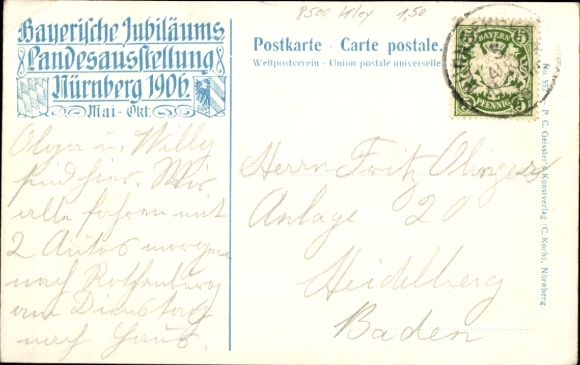 8500 1,50
Bayerische Jubiläums
Landesausstellung
Nürnberg 1906.
Mai - Okt.
Postkarte - Carte postale.
Weltpostverein - Union postale universelle
BAYERN
5 5
PFENNIG
Olga u. Willy
sind hier. Wir
alle fahren mit
2 Autos morgen
nach Rothenburg
am Dienstag
nach Haus.
Herrn Fritz
Anlage 20
Heidelberg
Baden
P. C. Geissler's Kunstverlag (C. Koch), Nürnberg